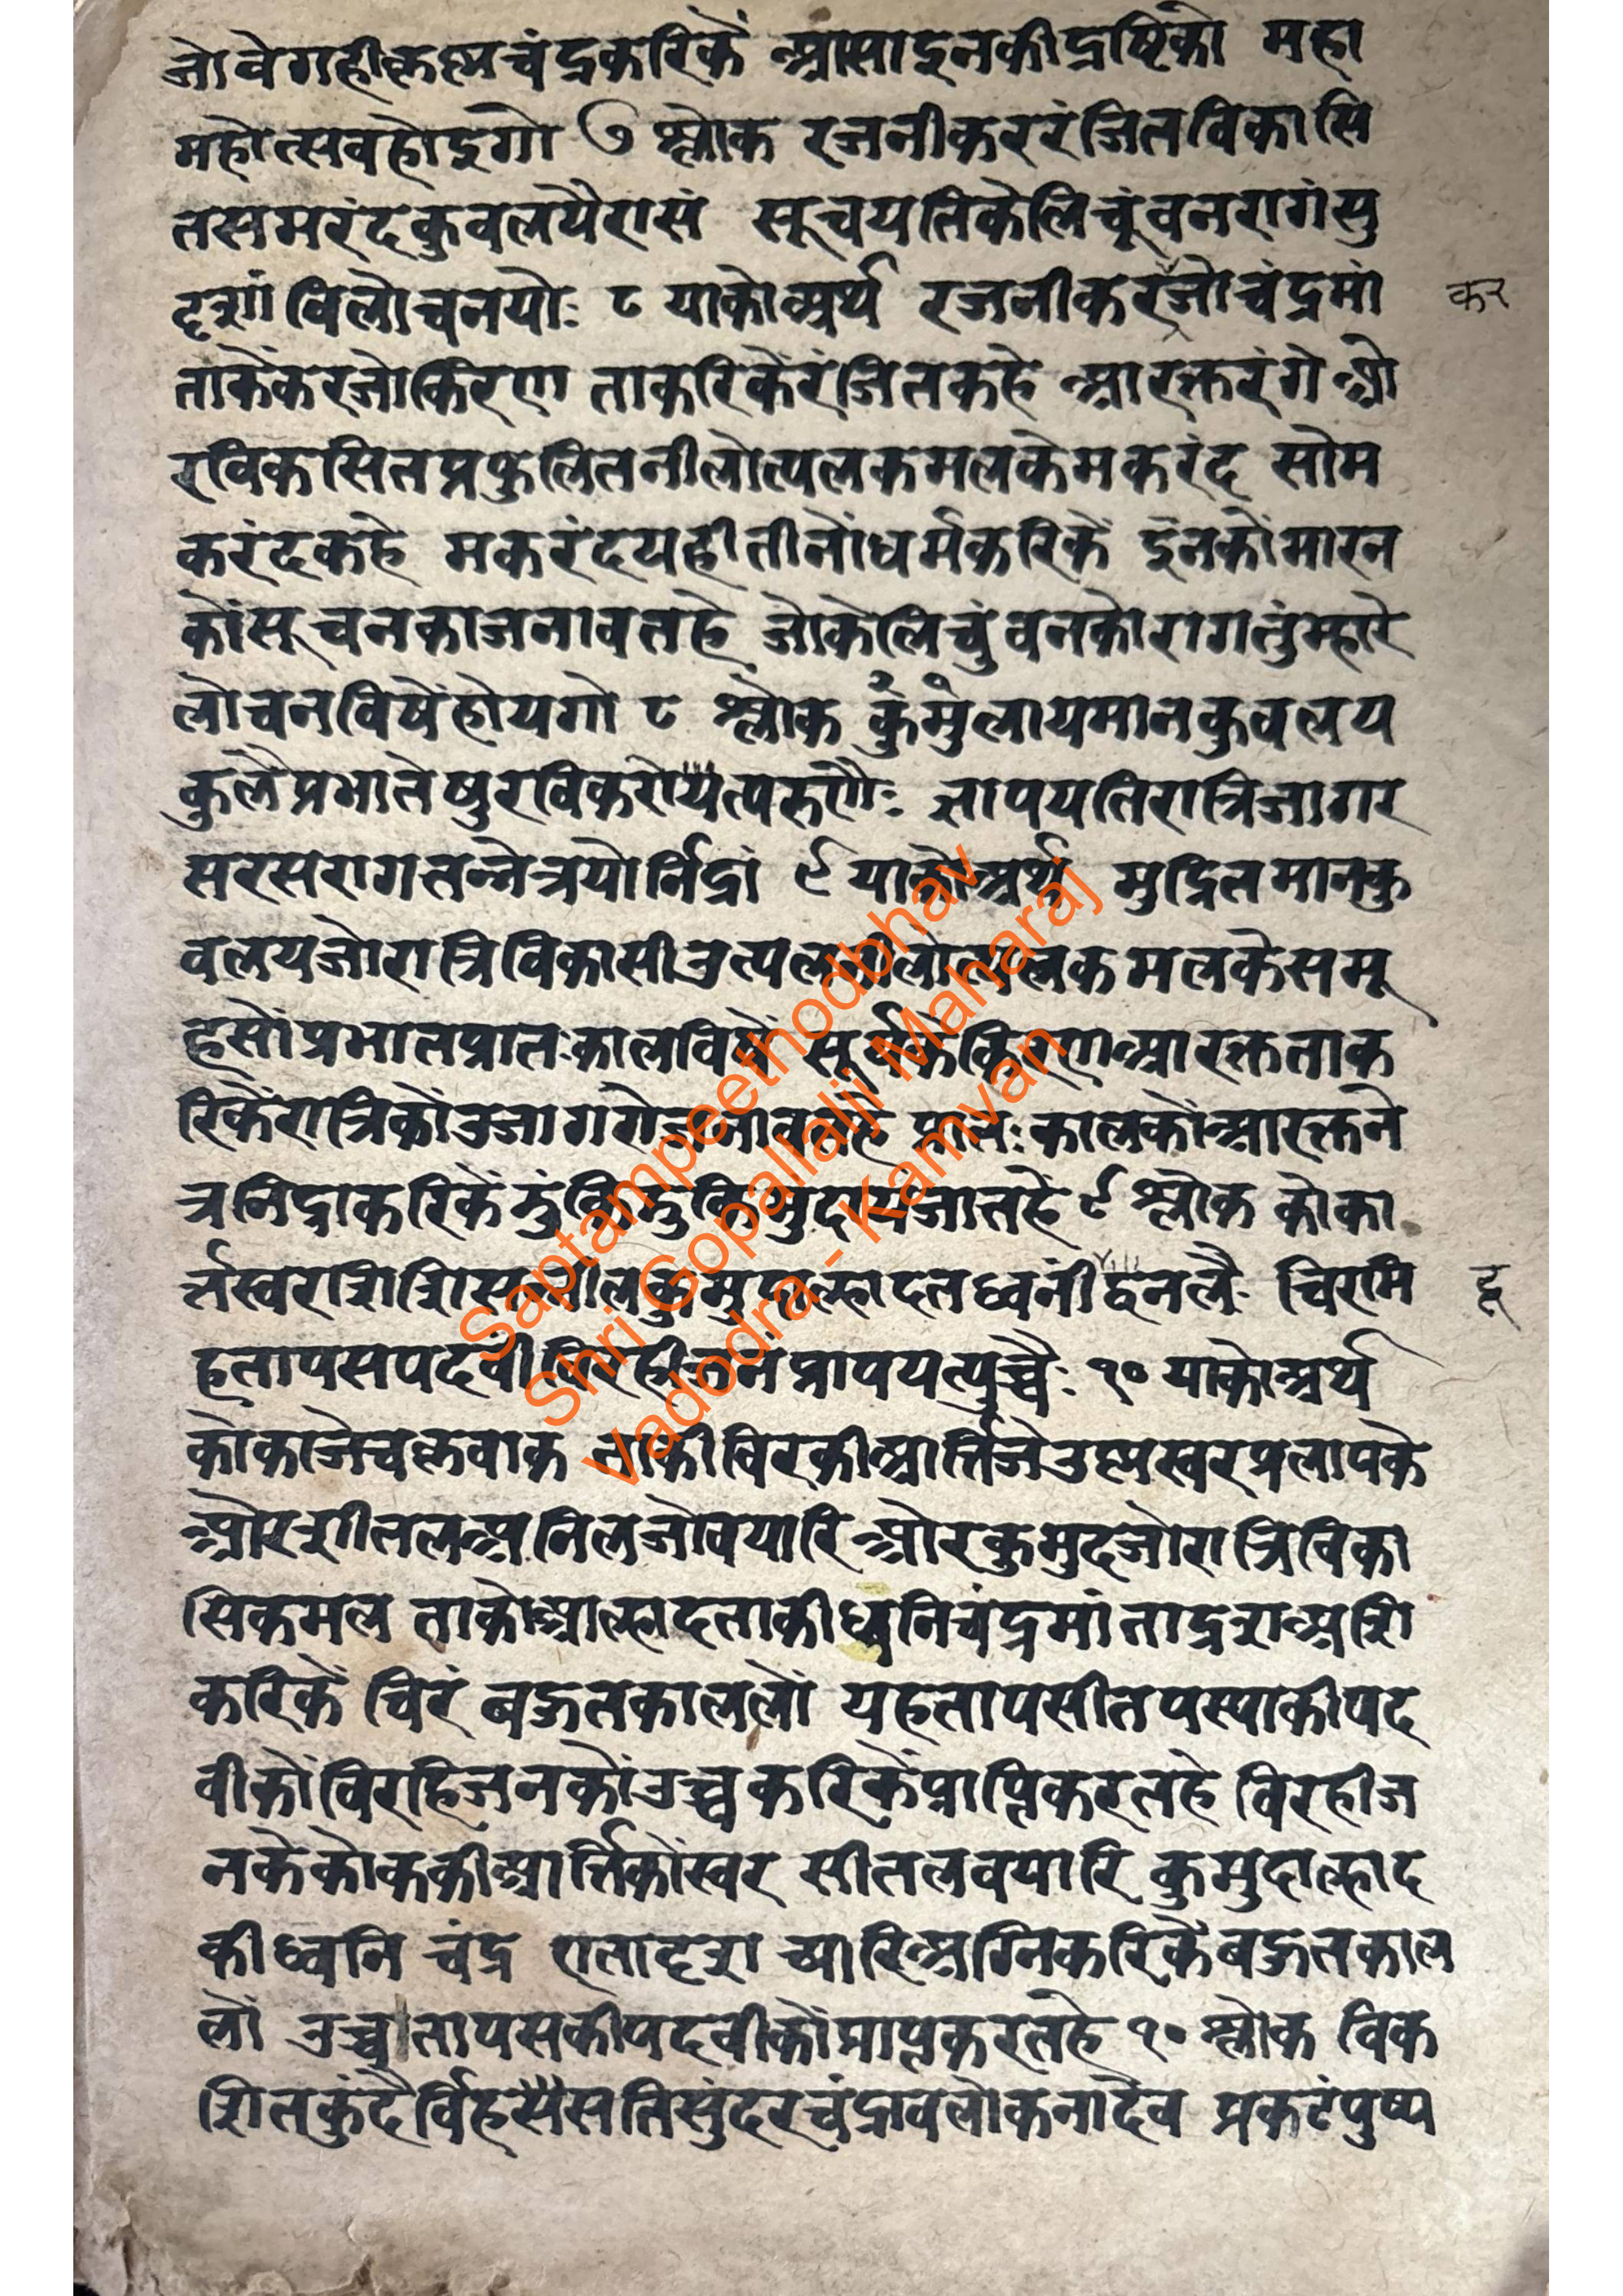 जोवेगहीकृष्णचंद्रकरिकें आसाइनकीद्रष्टिको महा
महोत्सवहोइगो ७ श्लोक रजनीकररंजितविकासि
तसमरंदकुवलयैरासं सूचयतिकेलिचुंवनरागंसु
दृशां विलोचनयोः ८ याकोअर्थ रजनीकरजोचंद्रमां
कर
ताकेंकरजोकिरण ताकरिकेंरंजितकहे आरक्तरंगे औ
रविकसितप्रफुलितनीलोत्पलकमलकेमकरंद सोम
करंदकहे मकरंदयहीतीनोंधर्मकरिकें इनकोंमारन
कोंसूचनकाजनावतहे जोकेलिचुंवनकोरागतुंम्हारे
लोचनविषेंहोयगो ८ श्लोक कुंमुलायमानकुवलय
कुलैप्रभातेषुरविकरोयत्परुणैः ज्ञापयतिरात्रिजागर
सरसरागतत्नेत्रयोर्निद्रां ९ याकोअर्थ मुद्रितमानकु
वलयजोरात्रिविकासीउत्पलनीलोत्पलकमलकेसमू
हसोंप्रभातप्रातःकालविषें सूर्यकेकिरणआरक्तताक
रिकेंरात्रिकोंउजागरोजनावतहे प्रातःकालकोंआरक्तने
त्रनिद्राकरिकें मुदायजातहें ९ श्लोक कोका
र्त्तस्वर द्वनलैः चिरमि
द्व
हतापसपदवींविरहीजनंप्रापयत्युच्चैः १० याकोअर्थ
कोकाजेचक्रवाक ताकीविरकीआर्त्तिजेउष्णस्वरप्रलापके
औरशीतलअनिलजोवयारि औरकुमुदजोरात्रिविका
सिकमल ताकोआल्हादताकीध्वनिचंद्रमां ताद्रशअग्नि
करिकें चिरं बहुतकाललों यहतापसीतपस्याकीपद
वीकोंविरहिजनकोंउच्चकरिकेंप्राप्तिकरतहे विरहीज
नकेकोककीआर्त्तिकोंस्वर सीतलवयारि कुमुदाल्हाद
कीध्वनि चंद्र एतादृश च्यारिअग्निकरिकेंबहुतकाल
लों उच्चतापसकीपदवीकोंप्राप्तकरतहे १० श्लोक विक
शितकुंदैर्विहसैसतिसुंदरचंद्रावलोकनादेव प्रकटंपुष्प
Saptampeethodbhav
Shri Gopallalji Maharaj
Vadodra - Kamvan